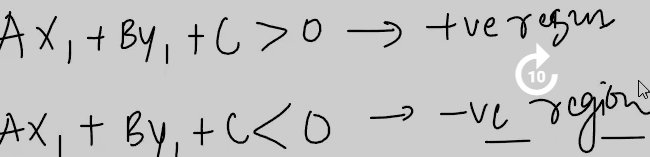 Ax₁ + By₁ + C > 0 → +ve region
10
Ax₁ + By₁ + C < 0 → -ve region